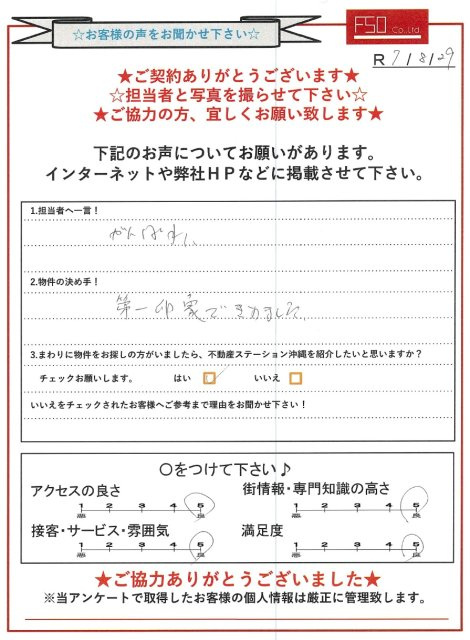 ☆お客様の声をお聞かせ下さい☆
FSO Co.,Ltd
R 7/8/29
★ご契約ありがとうございます★
☆担当者と写真を撮らせて下さい☆
★ご協力の方、宜しくお願い致します★
下記のお声についてお願いがあります。
インターネットや弊社HPなどに掲載させて下さい。
1.担当者へ一言！
がんばれ、
2.物件の決め手！
第一印象できめました
3.まわりに物件をお探しの方がいましたら、不動産ステーション沖縄を紹介したいと思いますか？
チェックお願いします。 はい いいえ
いいえをチェックされたお客様へご参考まで理由をお聞かせ下さい！
〇をつけて下さい♪
アクセスの良さ
1 2 3 4 5
悪 良
街情報・専門知識の高さ
1 2 3 4 5
悪 良
接客・サービス・雰囲気
1 2 3 4 5
悪 良
満足度
1 2 3 4 5
悪 良
★ご協力ありがとうございました★
※当アンケートで取得したお客様の個人情報は厳正に管理致します。